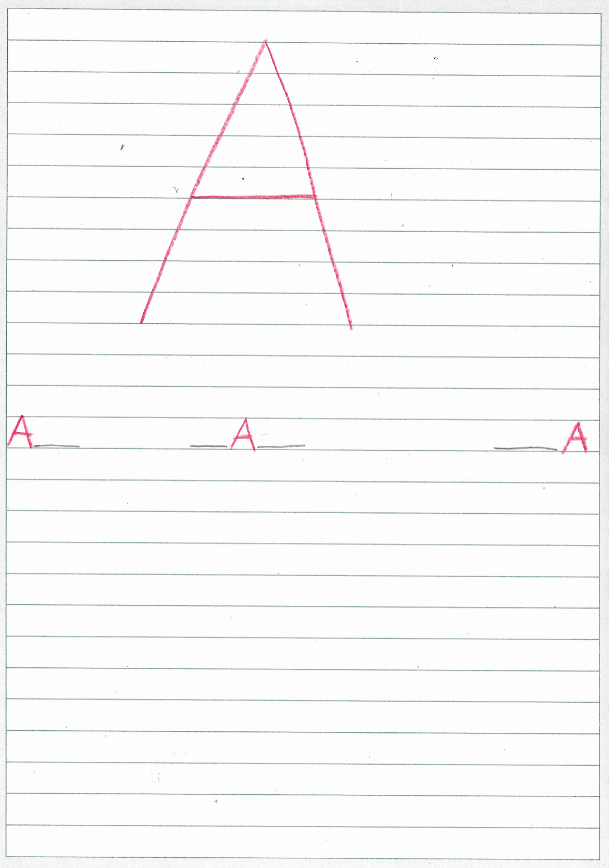 A
A__ __A__ __A